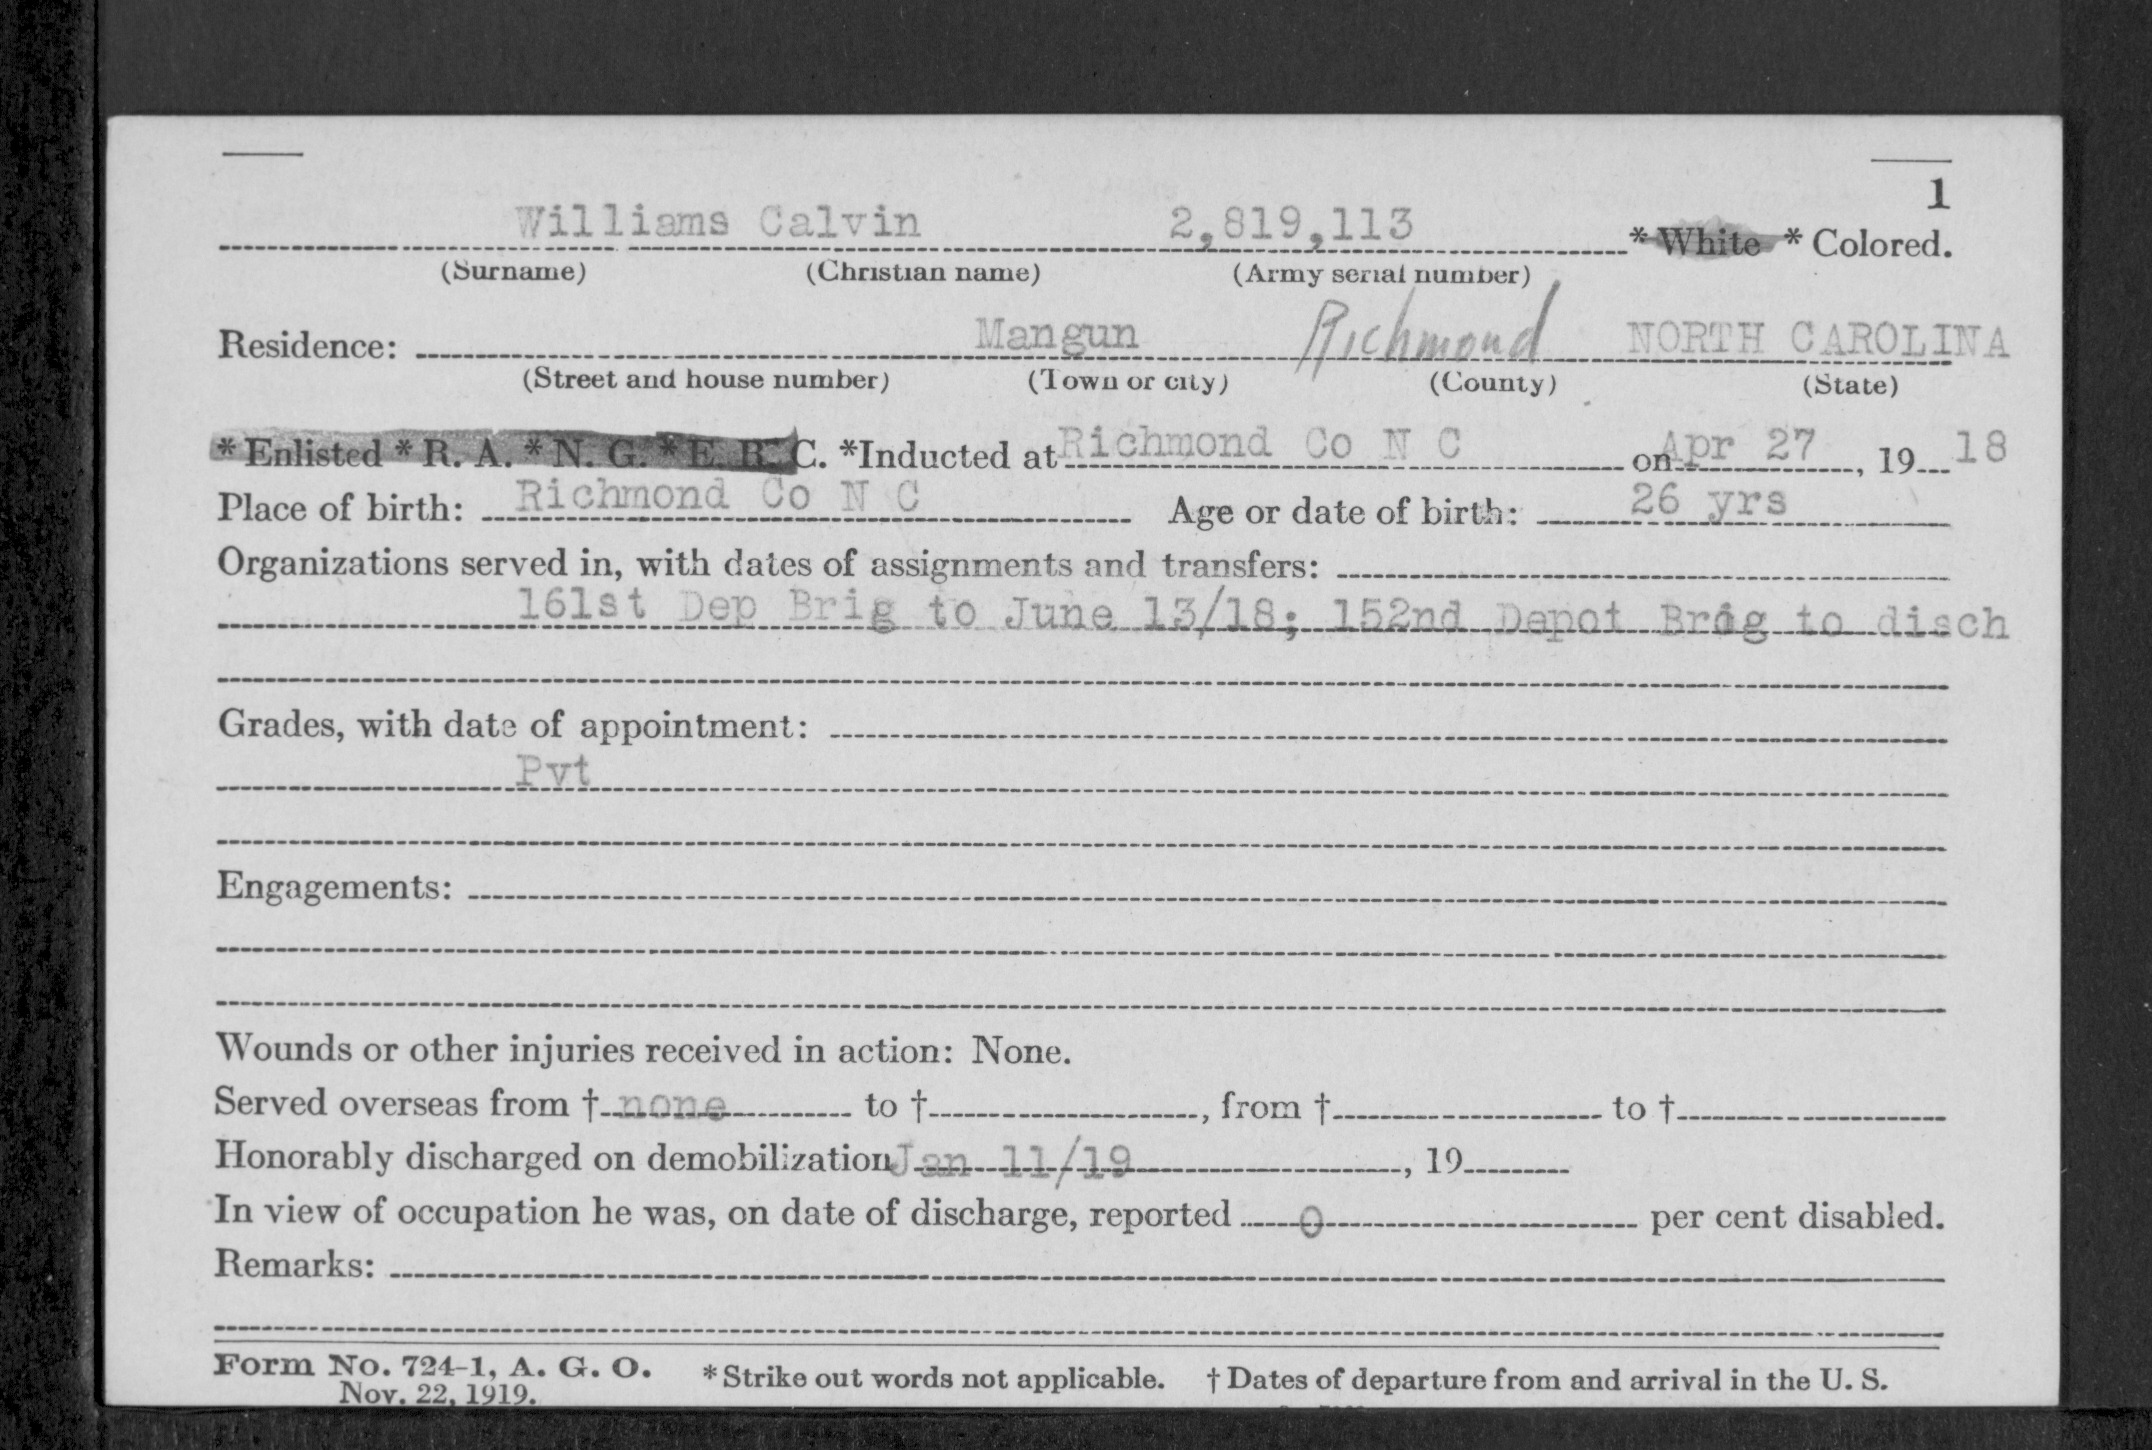 1
Williams Calvin 2,819,113 * White * Colored.
(Surname) (Christian name) (Army serial number)
Residence: Mangun Richmond NORTH CAROLINA
(Street and house number) (Town or city) (County) (State)
* Enlisted * R. A. * N. G. * E. R. C. *Inducted at Richmond Co N C on Apr 27, 1918
Place of birth: Richmond Co N C Age or date of birth: 26 yrs
Organizations served in, with dates of assignments and transfers:
161st Dep Brig to June 13/18; 152nd Depot Brig to disch
Grades, with date of appointment:
Pvt
Engagements:
Wounds or other injuries received in action: None.
Served overseas from † none to †, from † to †
Honorably discharged on demobilization Jan 11/19, 19
In view of occupation he was, on date of discharge, reported 0 per cent disabled.
Remarks:
Form No. 724-1, A. G. O. * Strike out words not applicable. † Dates of departure from and arrival in the U. S.
Nov. 22, 1919.